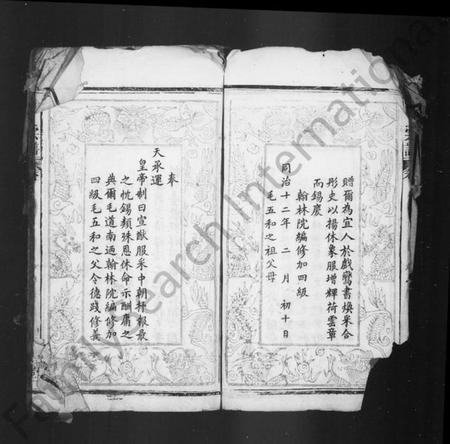 贈爾為宜人於戲鸞書煥采合
彤史以揚休象服增輝荷雲章
而錫慶
翰林院編修加四級
同治十二年 二 月 初十日
毛五和之祖父母
奉
天承運
皇帝制曰宣猷服采中朝抒報最
之忱錫類殊恩休命示酬庸之
典爾毛道南迺翰林院編修加
四級毛五和之父令德踐修義
FamilySearch International